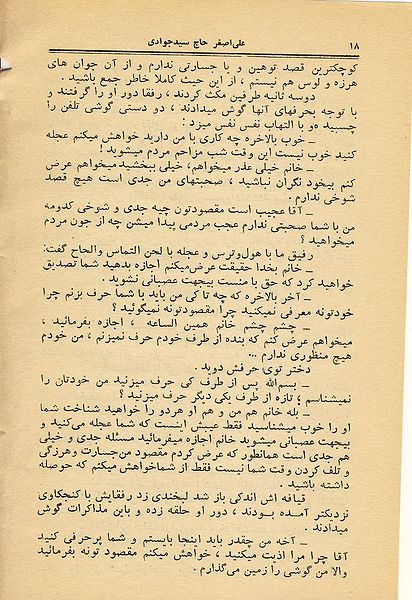 ۱۸
علی‌اصغر حاج سیدجوادی
کوچکترین قصد توهین و یا جسارتی ندارم و از آن جوان های
هرزه و لوس هم نیستم ، از این حیث کاملا خاطر جمع باشید .
دوسه ثانیه طرفین مکث کردند ، رفقا دور او را گرفتند و
با توجه بحرفهای آنها گوش میدادند ، دو دستی گوشی تلفن را
چسبیده و با التهاب نفس نفس میزد :
ــ خوب بالاخره چه کاری با من دارید خواهش میکنم عجله
کنید خوب نیست این وقت شب مزاحم مردم میشوید !
ــ خانم خیلی عذر میخواهم، خیلی ببخشید میخواهم عرض
کنم بیخود نگران نباشید ، صحبتهای من جدی است هیچ قصد
شوخی ندارم .
ــ آقا عجیب است مقصودتون چیه جدی و شوخی کدومه
من با شما صحبتی ندارم عجب مردمی پیدا میشن چه از جون مردم
میخواهید ؟
رفیق ما با هول‌وترس و عجله با لحن التماس والحاح گفت:
ــ خانم بخدا حقیقت عرض‌میکنم اجازه بدهید شما تصدیق
خواهید کرد که حق با منست بیجهت عصبانی نشوید .
ــ آخر بالاخره که چه تا کی من باید با شما حرف بزنم چرا
خودتونه معرفی نمیکنید چرا مقصودتونه نمیگوئید ؟
ــ چشم چشم خانم همین الساعه ، اجازه بفرمائید ،
میخواهم عرض کنم که بنده از طرف خودم حرف نمیزنم ، من خودم
هیچ منظوری ندارم ...
دختر توی حرفش دوید .
ــ بسم‌الله پس از طرف کی حرف میزنید من خودتان را
نمیشناسم ؛ تازه از طرف یکی دیگر حرف میزنید ؟
ــ بله خانم هم من و هم او هردو را خواهید شناخت شما
او را خوب میشناسید فقط عیبش اینست که شما عجله می‌کنید و
بیجهت عصبانی میشوید خانم اجازه میفرمائید مسئله جدی و خیلی
هم جدی است همانطور که عرض کردم مقصود من‌جسارت وهرزگی
و تلف کردن وقت شما نیست فقط از شماخواهش میکنم که حوصله
داشته باشید .
قیافه اش اندکی باز شد لبخندی زد رفقایش با کنجکاوی
نزدیکتر آمده بودند ، دور او حلقه زده و باین مذاکرات گوش
میدادند .
ــ آخه من چقدر باید اینجا بایستم و شما پرحرفی کنید
آقا چرا مرا اذیت میکنید ، خواهش میکنم مقصود تونه بفرمائید
والا من گوشی را زمین می‌گذارم .